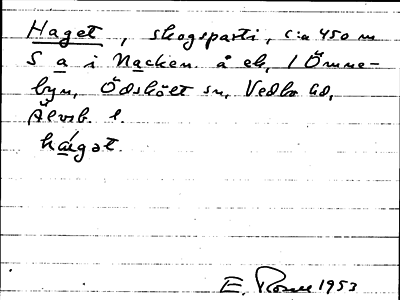 Haget, skogsparti, c:a 450 m
S a i Nacken å ek, 1 Ömne-
byn, Ödskölt sn, Vedbo hd,
Älvsb. l.
hágət.
E. Rosell 1953